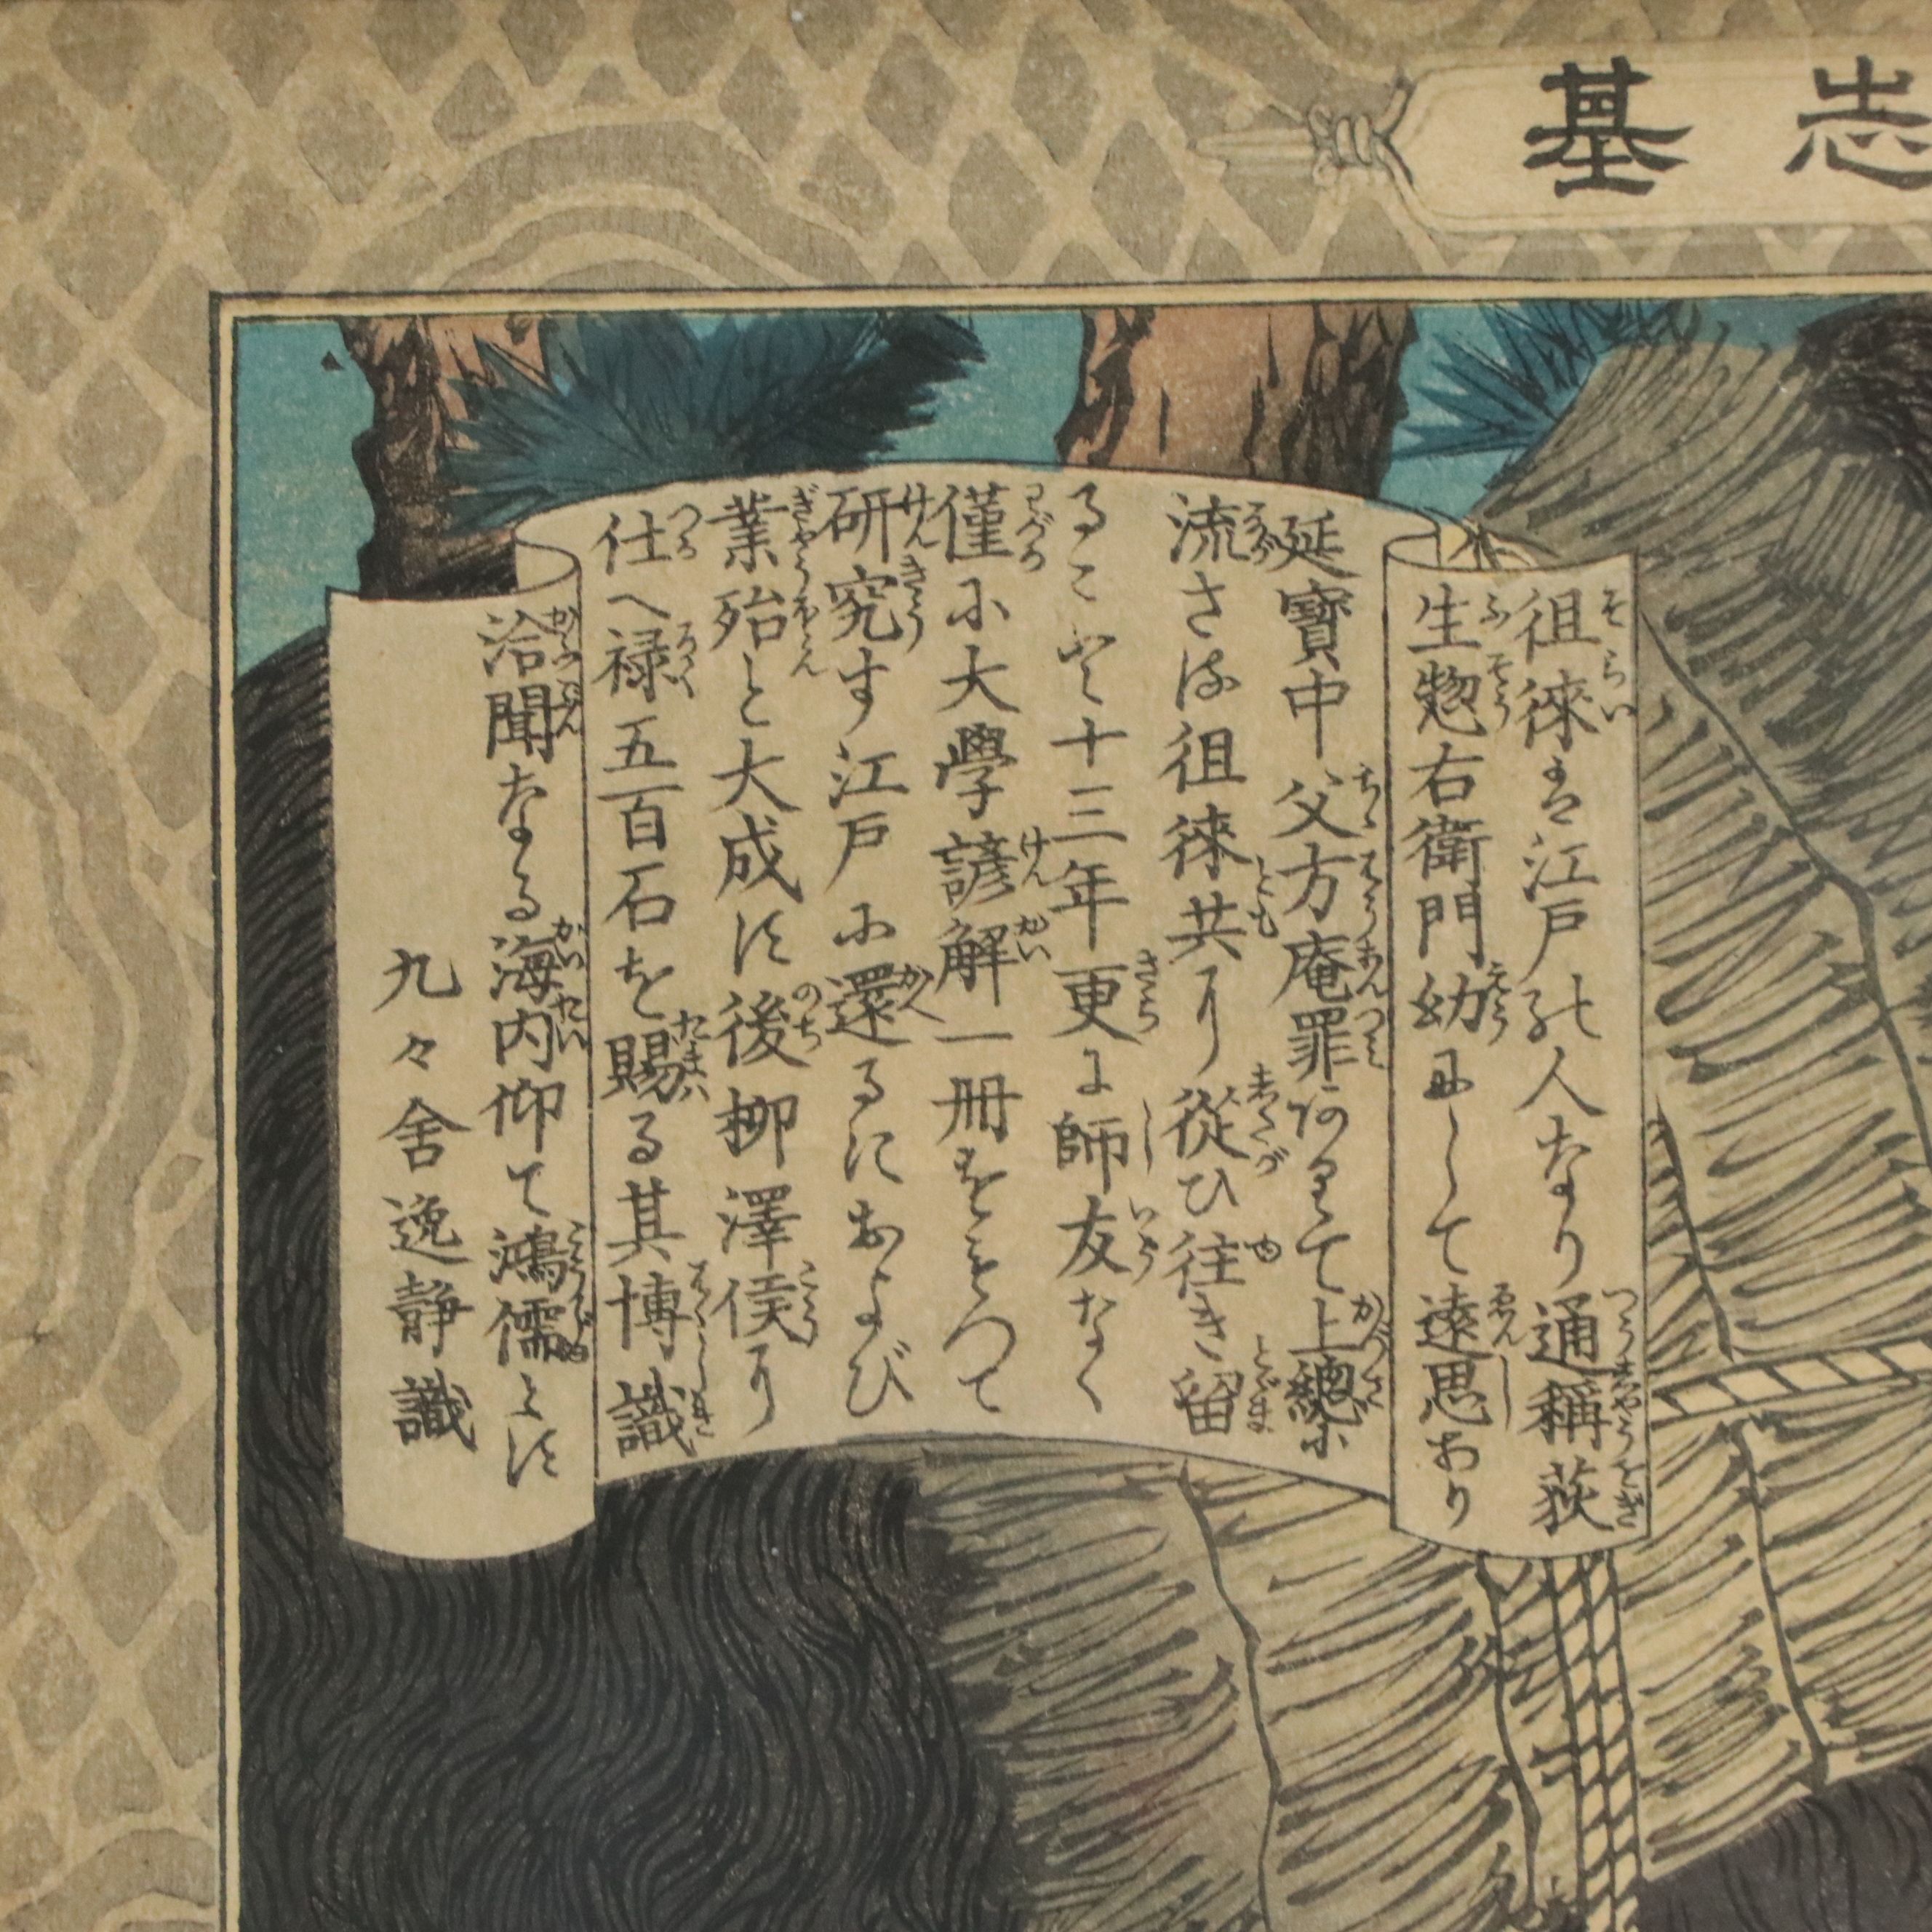 志基
徂徠は江戸の人なり通稱荻
生惣右衛門幼にして遠思あり
延寶中父方庵罪ありて上總に
流さる徂徠共に從ひ往き留
ること十三年更に師友なく
僅に大學諺解一冊をもつて
研究す江戸に還るにおよび
業殆と大成す後柳澤侯に
仕へ禄五百石を賜る其博識
洽聞なる海内仰て鴻儒とす
九々舎逸靜識